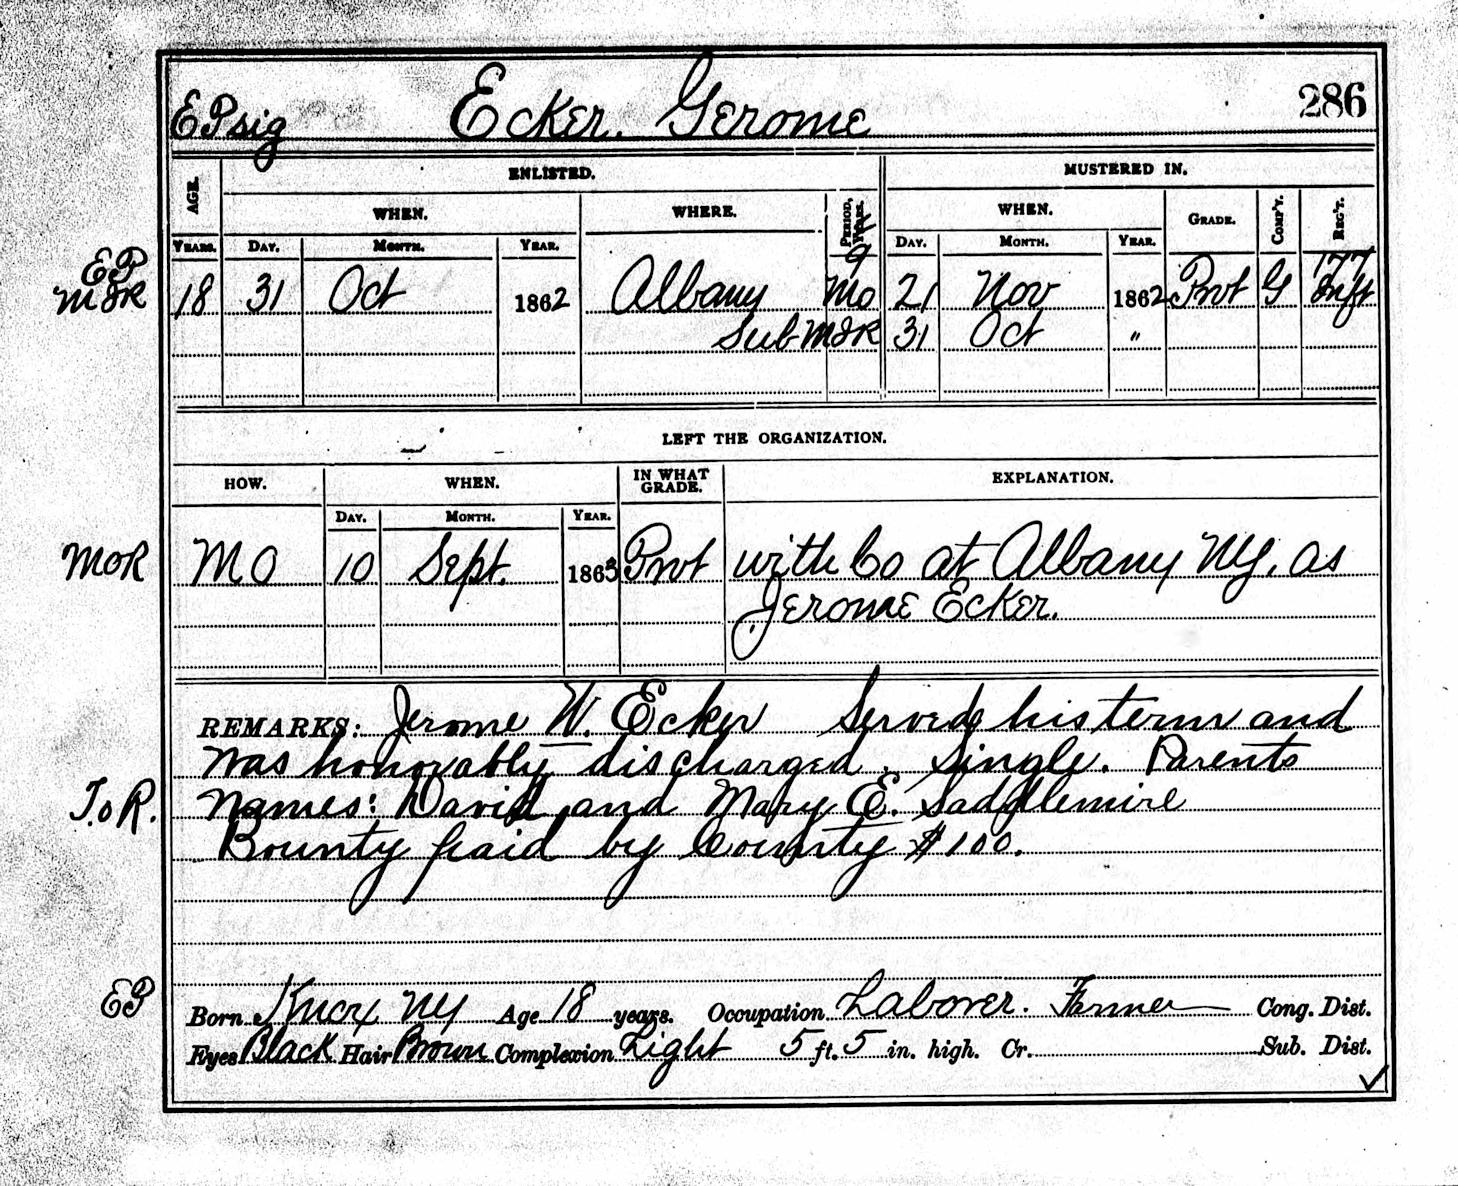 EP sig Ecker. Gerome 286
ENLISTED. MUSTERED IN.
AGE. WHEN. WHERE. PERIOD, YEARS. WHEN. GRADE. COMP'Y. REG'T.
YEARS. DAY. MONTH. YEAR. DAY. MONTH. YEAR.
EP 9 177
MIR 18 31 Oct 1862 Albany Mo 21 Nov 1862 Pvt G Inft
Sub MIR 31 Oct "
LEFT THE ORGANIZATION.
HOW. WHEN. IN WHAT GRADE. EXPLANATION.
DAY. MONTH. YEAR.
MOR MO 10 Sept. 1863 Pvt with Co at Albany NY, as
Jerome Ecker.
REMARKS: Jerome W. Ecker Served his term and
was honorably discharged. Single. Parents
T.o R. Names: David and Mary E. Saddlemire
Bounty paid by County $100.
EP Born Knox NY Age 18 years. Occupation Laborer. Farmer Cong. Dist.
Eyes Black Hair Brown Complexion Light 5 ft. 5 in. high. Cr. Sub. Dist.